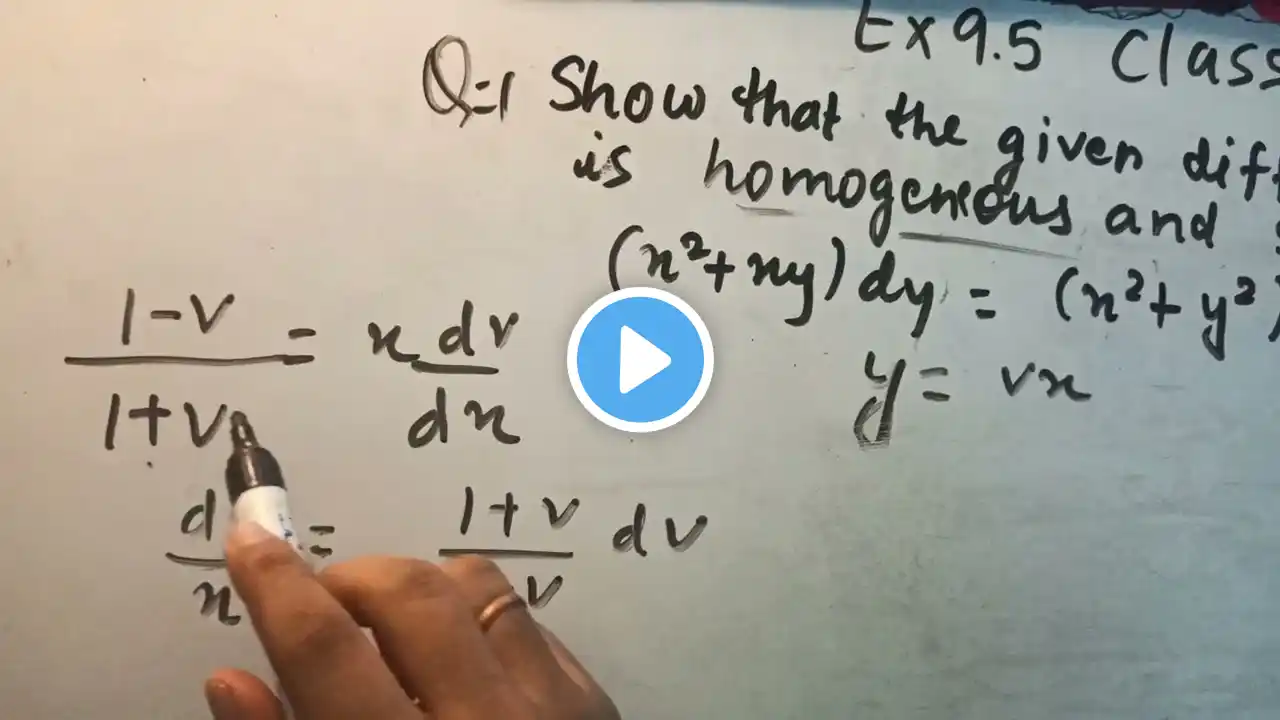 Ex 9.5 Class
Q=1 Show that the given diff
is homogenious and
(x²+xy) dy = (x²+y²)
y = vx
1-v / 1+v = x dv / dx
d / x = 1+v / -v dv